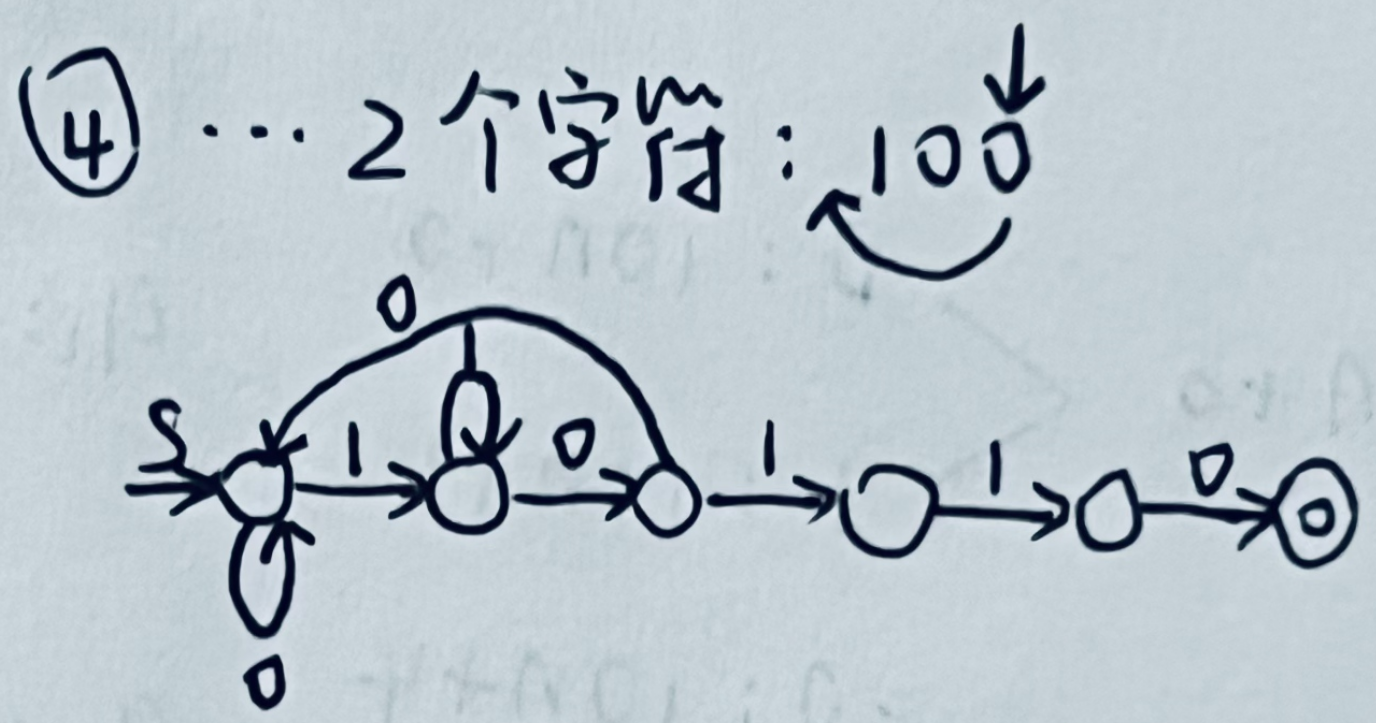 ④ …2个字符：100
0
S 1 0 1 1 0
0